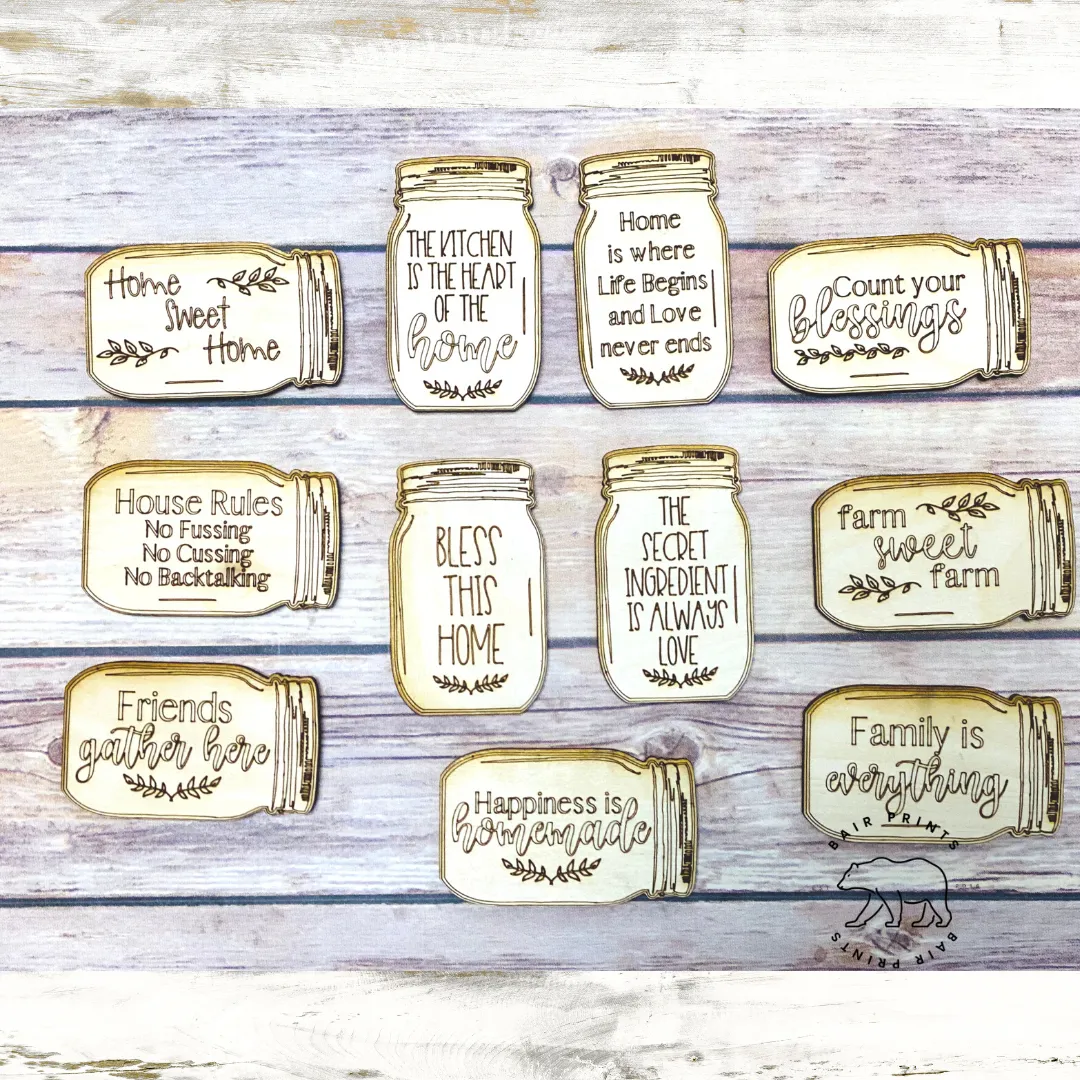 Home
Sweet
Home
THE KITCHEN
IS THE HEART
OF THE
home
Home
is where
Life Begins
and Love
never ends
Count your
blessings
House Rules
No Fussing
No Cussing
No Backtalking
BLESS
THIS
HOME
THE
SECRET
INGREDIENT
IS ALWAYS
LOVE
farm
sweet
farm
Friends
gather here
Happiness is
homemade
Family is
everything
BAIR PRINTS
BAIR PRINTS